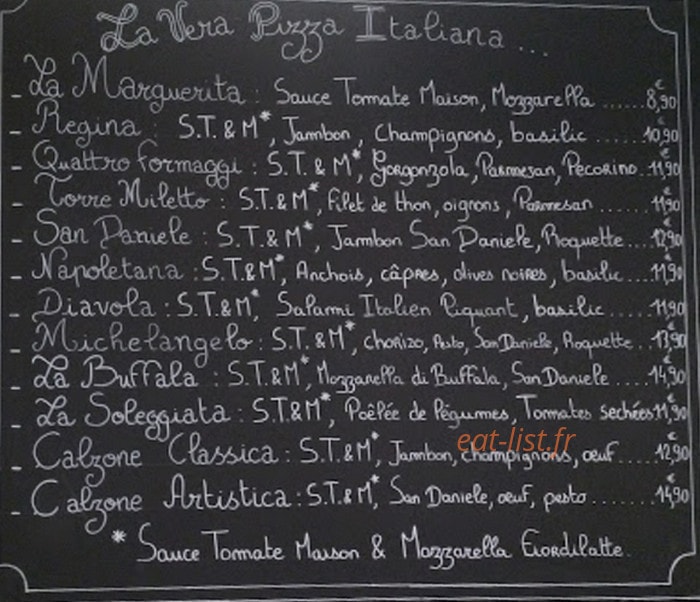 La Vera Pizza Italiana ...
- La Marguerita : Sauce Tomate Maison, Mozzarella ...... 8,90 €
- Regina : S.T. & M*, Jambon, Champignons, basilic ...... 10,90 €
- Quattro Formaggi : S.T. & M*, Gorgonzola, Parmesan, Pecorino .. 11,90 €
- Torre Miletto : S.T. & M*, Filet de thon, oignons, Parmesan ...... 11,90 €
- San Daniele : S.T. & M*, Jambon San Daniele, Roquette ... 12,90 €
- Napoletana : S.T. & M*, Anchois, câpres, olives noires, basilic .... 11,90 €
- Diavola : S.T. & M*, Salami Italien Piquant, basilic ...... 11,90 €
- Michelangelo : S.T. & M*, chorizo, Pesto, San Daniele, Roquette .. 13,90 €
- La Buffala : S.T. & M*, Mozzarella di Buffala, San Daniele .... 14,90 €
- La Soleggiata : S.T. & M*, Poêlée de légumes, Tomates sechées 11,90 €
eat-list.fr
- Calzone Classica : S.T. & M*, Jambon, champignons, œuf .... 12,90 €
- Calzone Artistica : S.T. & M*, San Daniele, œuf, pesto ........ 14,90 €
* Sauce Tomate Maison & Mozzarella Fiordilatte.